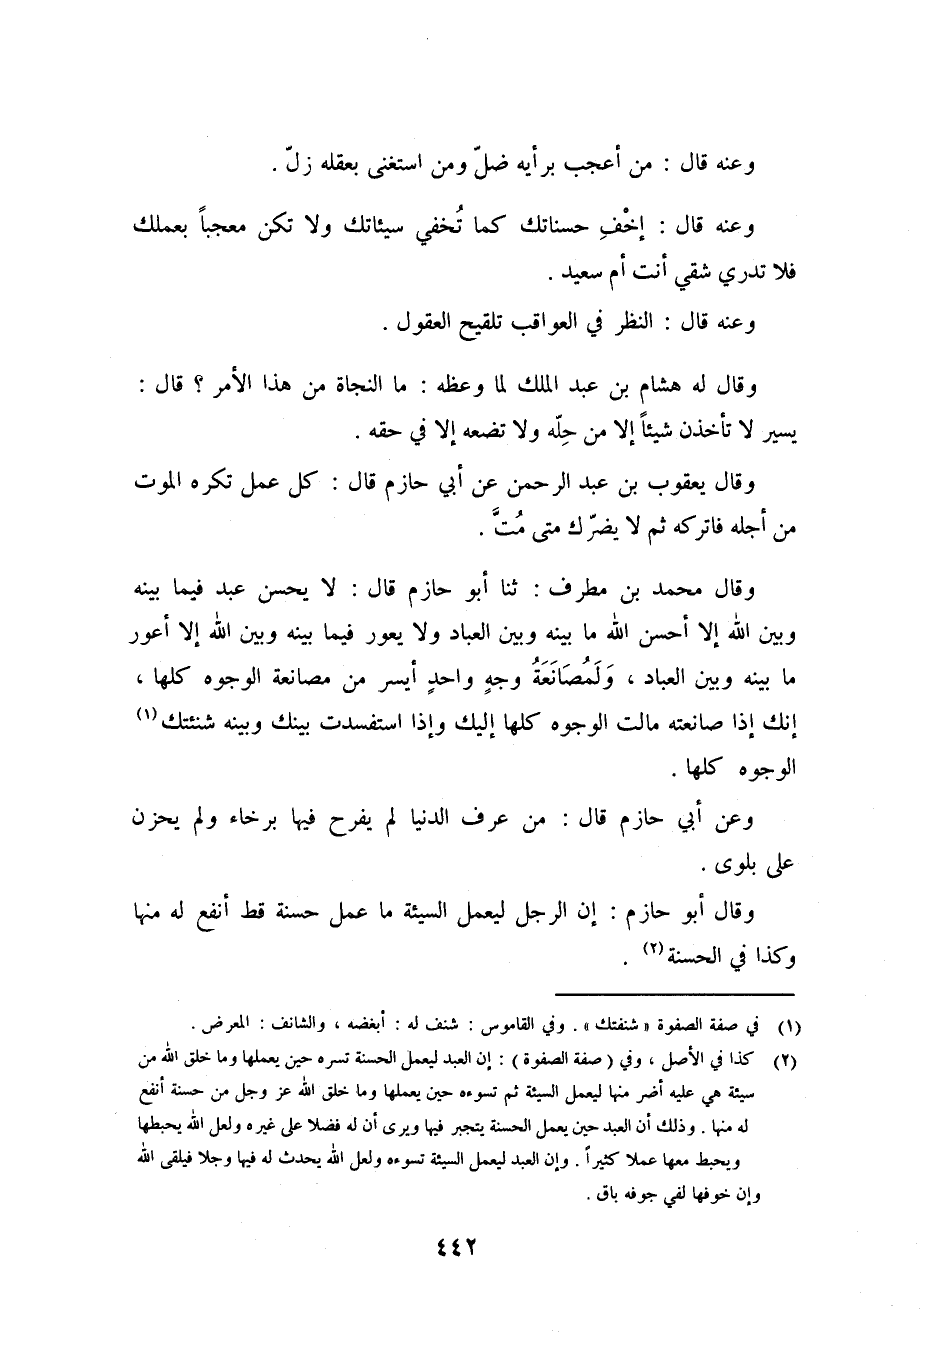 وعنه قال : من أعجب برأيه ضلّ ومن استغنى بعقله زلّ .
وعنه قال : إخْفِ حسناتك كما تُخفي سيئاتك ولا تكن معجباً بعملك
فلا تدري شقي أنت أم سعيد .
وعنه قال : النظر في العواقب تلقيح العقول .
وقال له هشام بن عبد الملك لما وعظه : ما النجاة من هذا الأمر ؟ قال :
يسير لا تأخذن شيئاً إلا من حِلّه ولا تضعه إلا في حقه .
وقال يعقوب بن عبد الرحمن عن أبي حازم قال : كل عمل تكره الموت
من أجله فاتركه ثم لا يضرّك متى مُتَّ .
وقال محمد بن مطرف : ثنا أبو حازم قال : لا يحسن عبد فيما بينه
وبين الله إلا أحسن الله ما بينه وبين العباد ولا يعور فيما بينه وبين الله إلا أعور
ما بينه وبين العباد ، وَلَمُصَانَعَةُ وجهٍ واحدٍ أيسر من مصانعة الوجوه كلها ،
إنك إذا صانعته مالت الوجوه كلها إليك وإذا استفسدت بينك وبينه شنئتك (١)
الوجوه كلها .
وعن أبي حازم قال : من عرف الدنيا لم يفرح فيها برخاء ولم يحزن
على بلوى .
وقال أبو حازم : إن الرجل ليعمل السيئة ما عمل حسنة قط أنفع له منها
وكذا في الحسنة (٢) .
(١) في صفة الصفوة « شنفتك » . وفي القاموس : شنف له : أبغضه ، والشانف : المعرض .
(٢) كذا في الأصل ، وفي ( صفة الصفوة ) : إن العبد ليعمل الحسنة تسره حين يعملها وما خلق الله من
سيئة هي عليه أضر منها ليعمل السيئة ثم تسوءه حين يعملها وما خلق الله عز وجل من حسنة أنفع
له منها . وذلك أن العبد حين يعمل الحسنة يتجبر فيها ويرى أن له فضلا على غيره ولعل الله يحبطها
ويحبط معها عملا كثيراً . وإن العبد ليعمل السيئة تسوءه ولعل الله يحدث له فيها وجلا فيلقى الله
وإن خوفها لفي جوفه باق .
٤٤٢